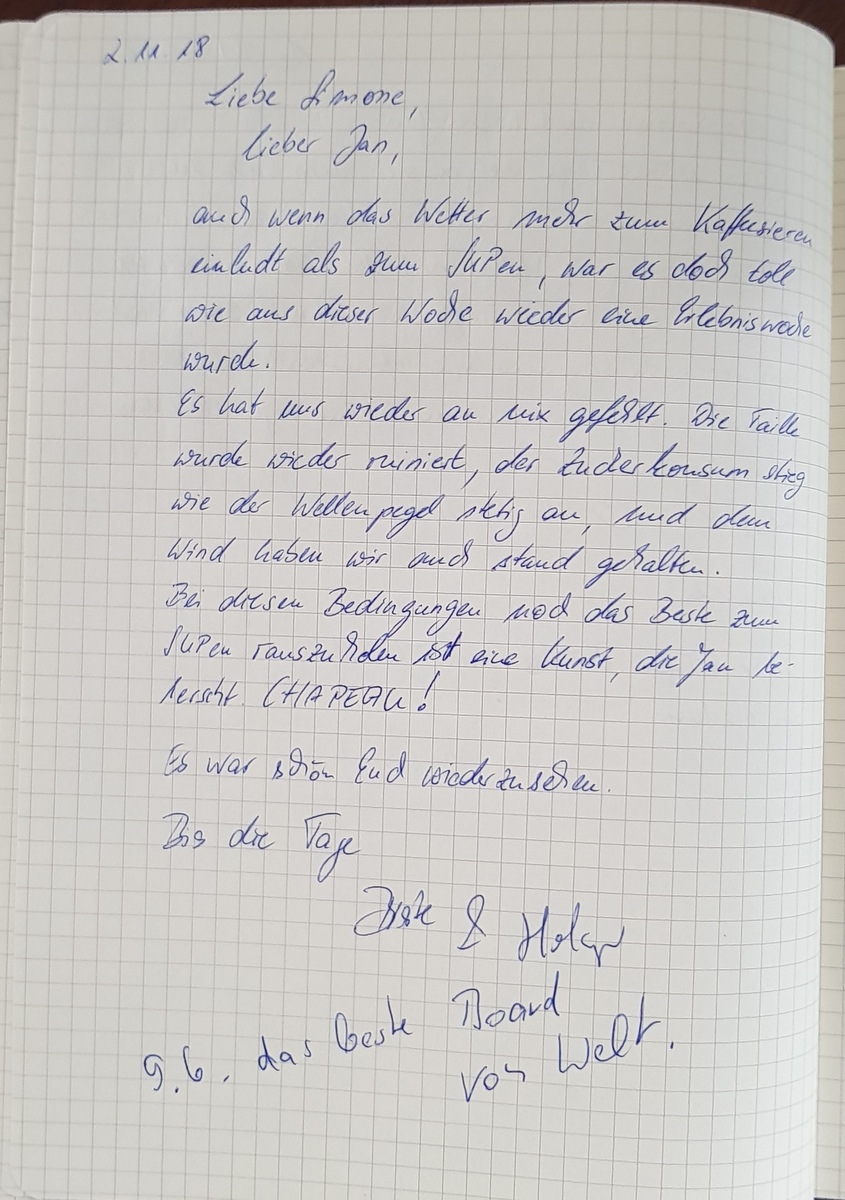 2.11.18
Liebe Simone,
lieber Jan,
auch wenn das Wetter mehr zum Kaffeesieren
einludt als zum SUPen, war es doch toll
wie aus dieser Woche wieder eine Erlebniswoche
wurde.
Es hat uns wieder an nix gefehlt. Die Taille
wurde wieder ruiniert, der Zuckerkonsum stieg
wie der Wellenpegel stetig an, und dem
Wind haben wir auch stand gehalten.
Bei diesen Bedingungen noch das Beste zum
SUPen rauszuholen ist eine Kunst, die Jan be-
herrscht. CHAPEAU!
Es war schön Euch wiederzusehen.
Bis die Tage
& Holger
9.6. das beste Board
von Welt.